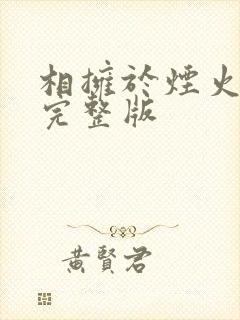 相擁於煙火
完整版
黃賢君